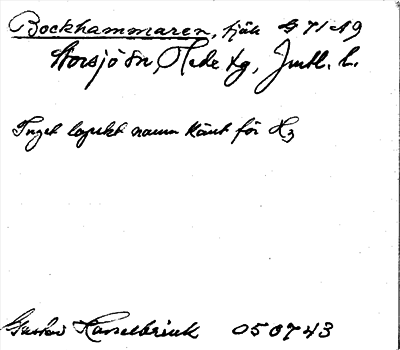 Bockhammaren, fjäll G 71 A9
Storsjö sn, Hede tg, Jmtl. l.
Inget lapskt namn känt för H3
Gustav Hasselbrink 050743